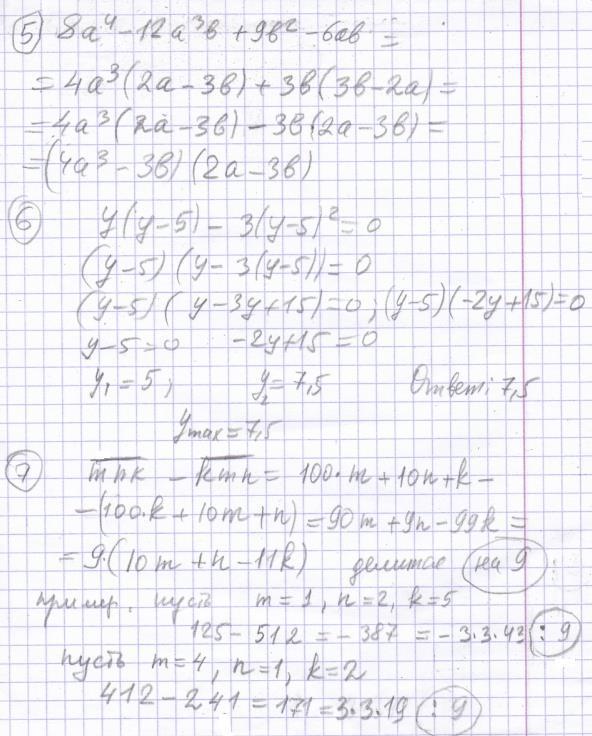 5) 8a⁴ - 12a³в + 9в² - 6ав =
= 4a³(2a - 3в) + 3в(3в - 2a) =
= 4a³(2a - 3в) - 3в(2a - 3в) =
= (4a³ - 3в)(2a - 3в)
6) y(y-5) - 3(y-5)² = 0
(y-5)(y - 3(y-5)) = 0
(y-5)(y - 3y + 15) = 0; (y-5)(-2y+15) = 0
y-5=0 -2y+15=0
y₁=5; y₂=7,5 Ответ: 7,5
ymax=7,5
7) m̅n̅k̅ - k̅m̅n̅ = 100·m + 10n + k -
-(100·k + 10m + n) = 90m + 9n - 99k =
= 9(10m + n - 11k) делится на 9:
пример. пусть m=1, n=2, k=5
125 - 512 = -387 = -3·3·43 ⋮ 9
пусть m=4, n=1, k=2
412 - 241 = 171 = 3·3·19 ⋮ 9